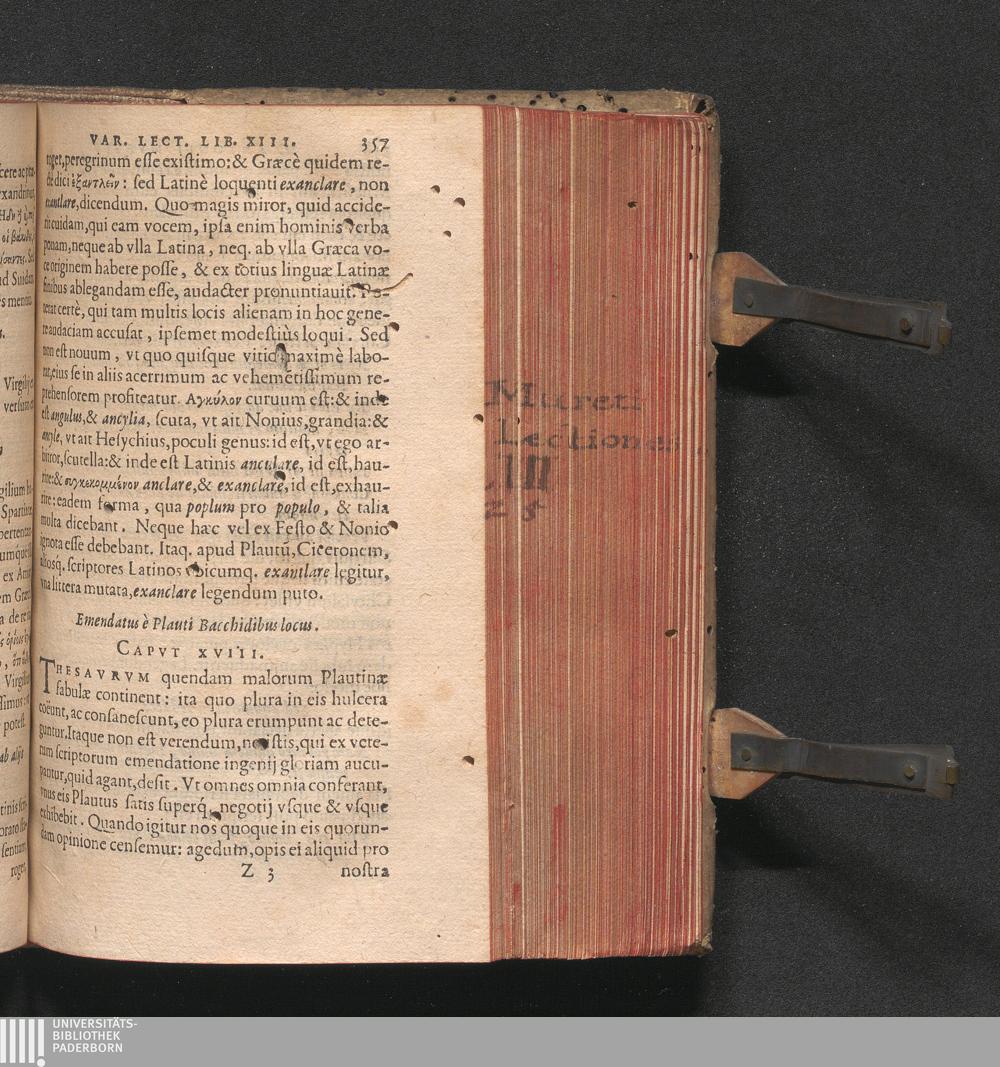 VAR. LECT. LIB. XIII. 357
roget,peregrinum eſſe exiſtimo:& Græcè quidem re-
ctè dici ἐξαντλεῖν: ſed Latinè loquenti exanclare, non
exantlare,dicendum. Quo magis miror, quid accide-
rit cuidam,qui eam vocem, ipſa enim hominis verba
ponam,neque ab vlla Latina, neq. ab vlla Græca vo-
ce originem habere poſſe, & ex totius linguæ Latinæ
finibus ablegandam eſſe, audacter pronuntiauit. Po-
terat certè, qui tam multis locis alienam in hoc gene-
re audaciam accuſat, ipſemet modeſtiùs loqui. Sed
non eſt nouum, vt quo quiſque vitio maximè labo-
rat,eius ſe in aliis acerrimum ac vehemẽtiſſimum re-
prehenſorem profiteatur. Αγκύλον curuum eſt:& inde
eſt angulus,& ancylia, ſcuta, vt ait Nonius,grandia:&
ancyle, vt ait Heſychius,poculi genus: id eſt,vt ego ar-
bitror,ſcutella:& inde eſt Latinis anculare, id eſt,hau-
rire:& συγκεκομμένον anclare,& exanclare,id eſt,exhau-
rire: eadem forma, qua poplum pro populo, & talia
multa dicebant. Neque hæc vel ex Feſto & Nonio
ignota eſſe debebant. Itaq. apud Plautũ,Ciceronem,
alioſq́. ſcriptores Latinos vbicumq. exantlare legitur,
vna littera mutata,exanclare legendum puto.
Emendatus è Plauti Bacchidibus locus.
CAPVT XVIII.
THESAVRVM quendam malorum Plautinæ
fabulæ continent: ita quo plura in eis hulcera
coëunt, ac conſaneſcunt, eo plura erumpunt ac dete-
guntur.Itaque non eſt verendum,ne iſtis,qui ex vete-
rum ſcriptorum emendatione ingenij gloriam aucu-
pantur,quid agant,deſit. Vt omnes omnia conferant,
vnus eis Plautus ſatis ſuperq́. negotij vſque & vſque
exhibebit. Quando igitur nos quoque in eis quorun-
dam opinione cenſemur: agedum,opis ei aliquid pro
Z 3 noſtra
Mureti
Lectiones
UNIVERSITÄTS-
BIBLIOTHEK
PADERBORN